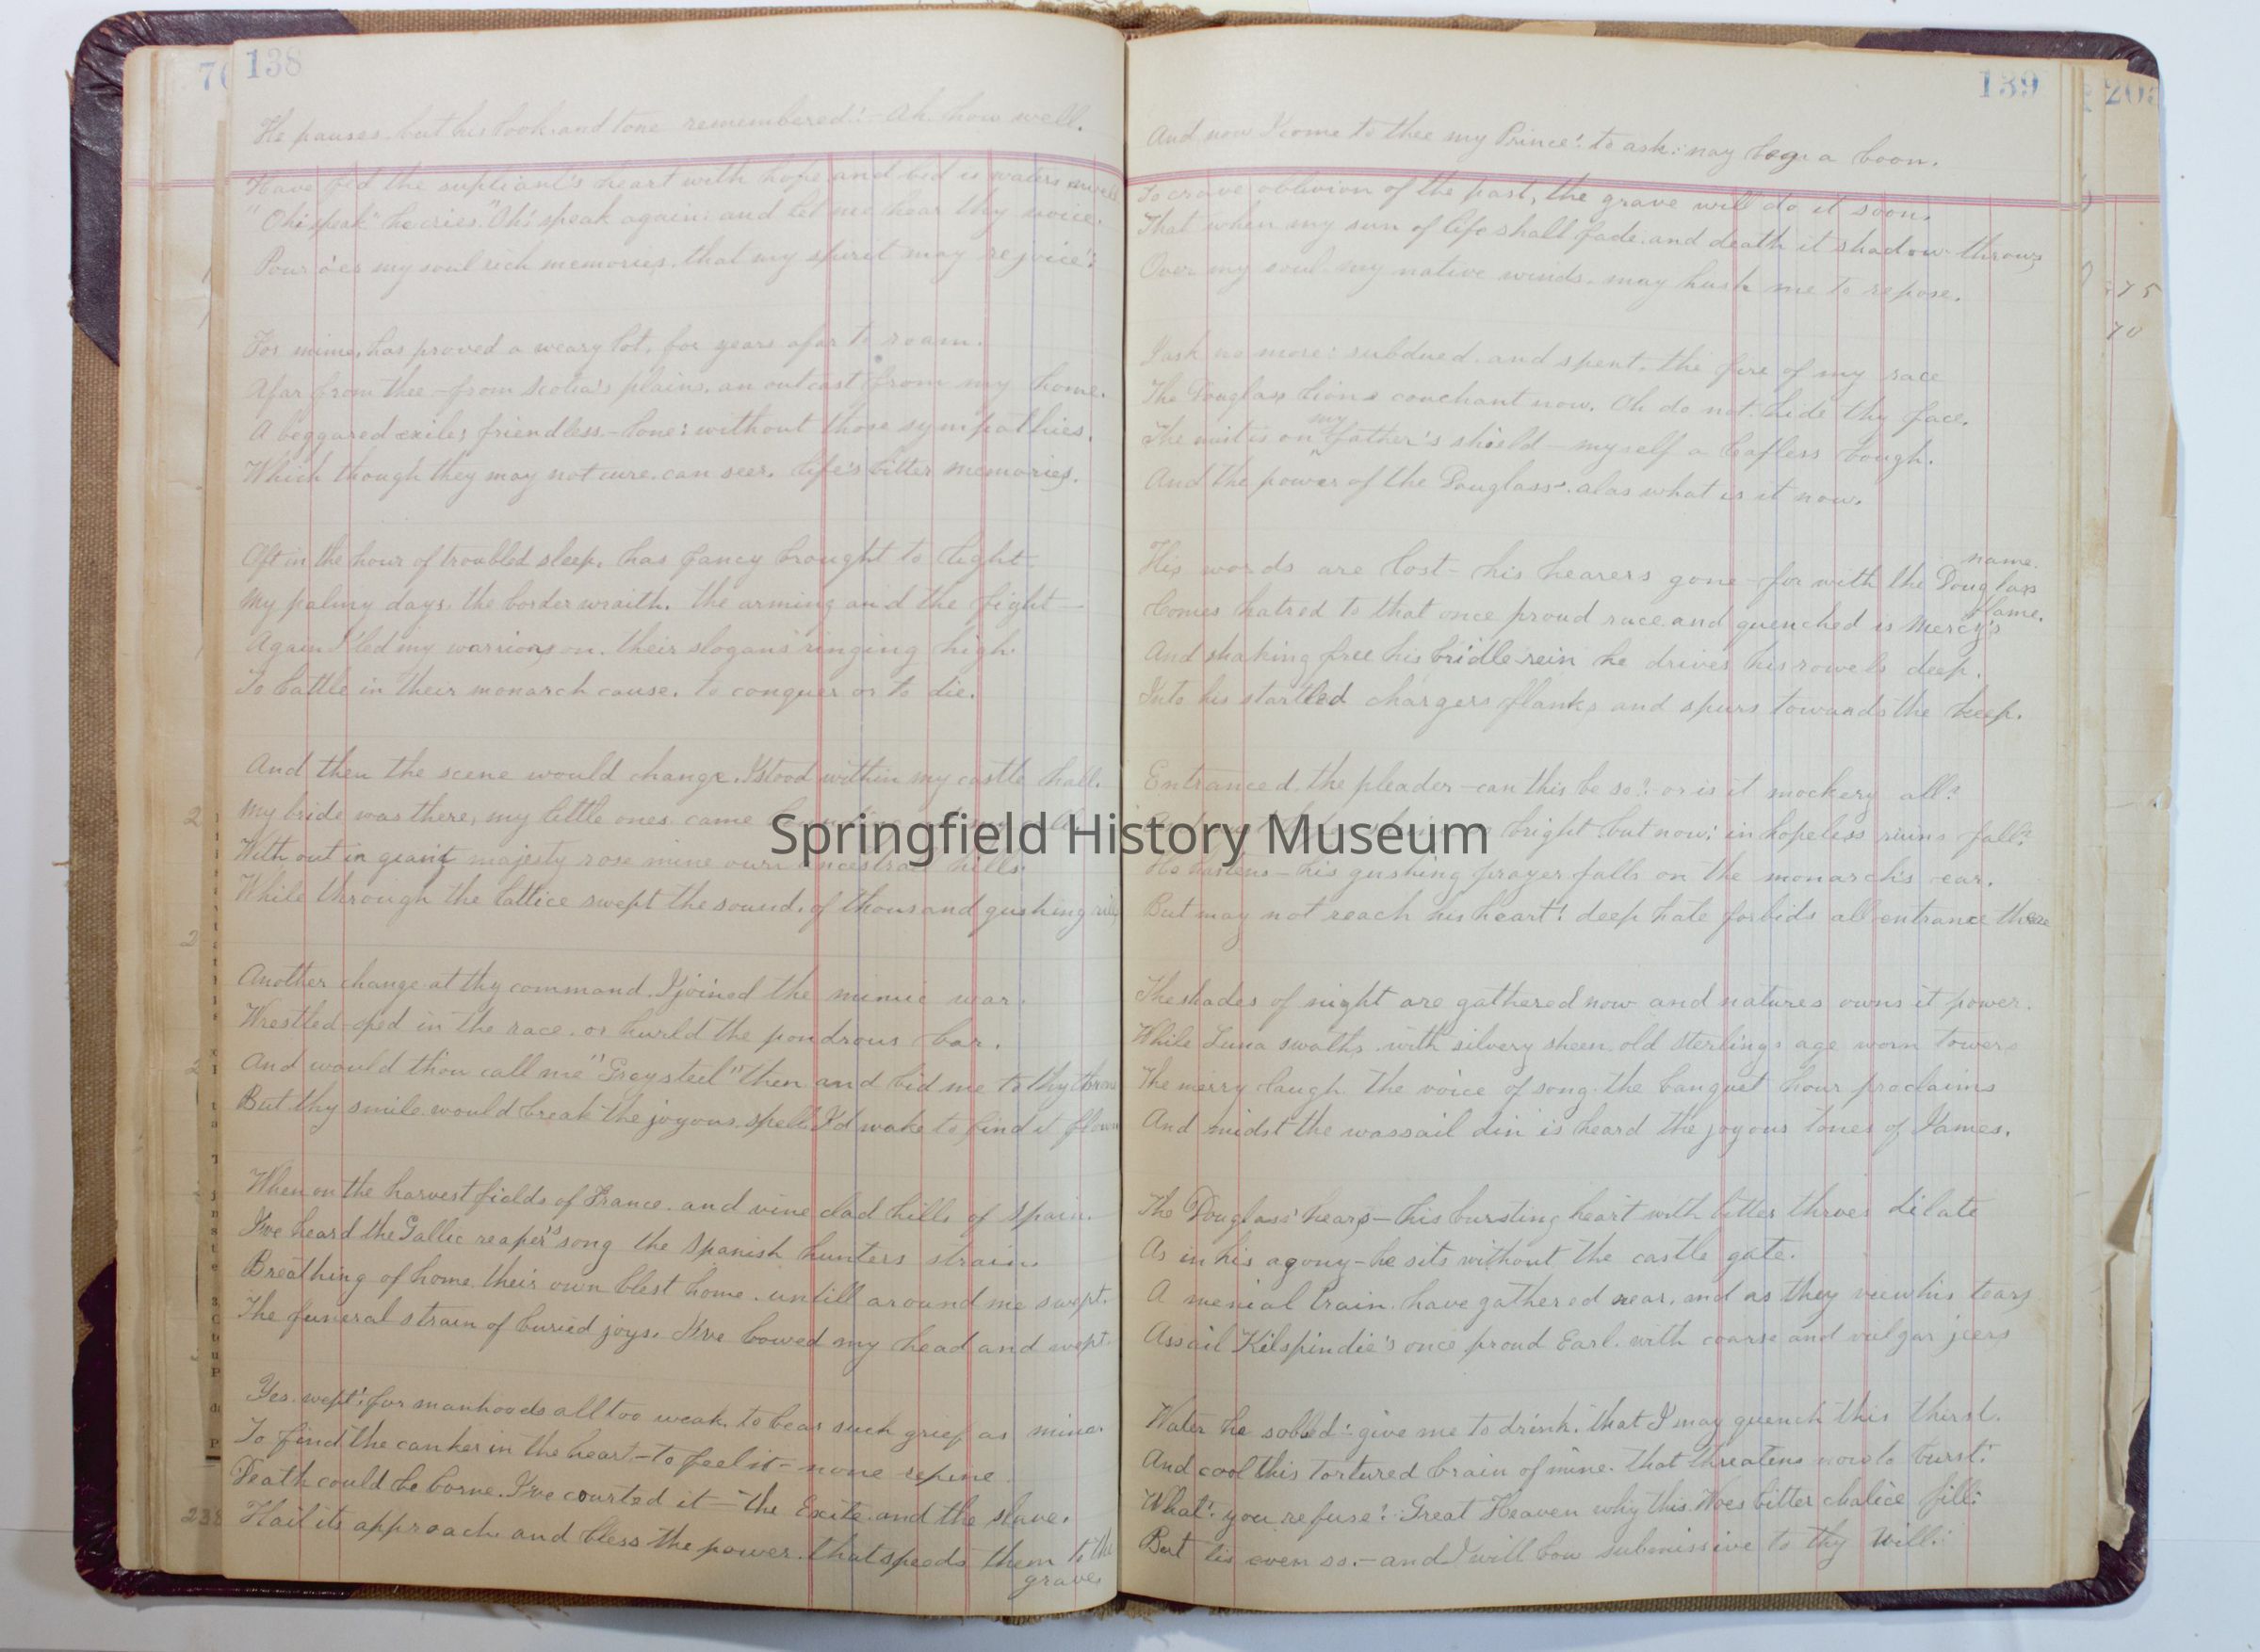 138
He pauses. but his look and tone remembered:- Ah. how well.
Have fed the supliant's heart with hope and bid is waters
"Oh! speak" he cries. "Oh! speak again: and let me hear thy voice.
Pour o'er my soul rich memories. that my spirit may rejoice!
For mine, has proved a weary lot, for years afar to roam.
Afar from thee - from Scotia's plains. an outcast from my home.
A beggared exile; friendless - lone: without those sympathies.
Which though they may not cure. can seer. life's bitter memories.
Oft in the hour of troubled sleep. has fancy brought to light
My palmy days. the border wraith. the arming and the fight—
Again I led my warriors on. their slogans ringing high.
To battle in their monarch cause. to conquer or to die.
And then the scene would change. I stood within my castle hall.
My bride was there, my little ones came
With out in giant majesty rose mine own ancestral hills.
While through the lattice swept the sound. of thousand gushing rills
Another change at thy command. I joined the mimic war.
Wrestled - sped in the race. or hurld the pondrous bar.
And would thou call me "Greysteel" then and bid me to thy throne
But thy smile would break the joyous spell. I'd wake to find it flown
When on the harvest fields of France. and vine clad hills of Spain.
I've heard the Gallic reaper's song the Spanish hunters strain
Breathing of home. their own blest home. untill around me swept.
The funeral strain of buried joys. I've bowed my head and wept.
Yes. wept! for manhoods all too weak. to bear such grief as mine
To find the canker in the heart - to feel it - none repine.
Death could be borne. I've courted it — the Exile. and the slave.
Hail its approach and bless the power. that speeds them to the
grave
139
And now I come to thee my Prince! to ask: nay beg a boon.
To crave oblivion of the past, the grave will do it soon.
That when my sun of life shall fade. and death it shadow throws
Over my soul. my native winds. may hush me to repose.
I ask no more: subdued. and spent. the fire of my race
The Douglass lions couchant now. Oh do not hide thy face.
my
The mist is on father's shield - myself a leafless bough.
And the power of the Douglass. alas what is it now.
name.
His words are lost - his hearers gone - for with the Douglass
flame.
Comes hatred to that once proud race. and quenched is Mercy's
And shaking free his bridle rein he drives his rowels deep.
Into his startled chargers flanks and spurs towards the keep.
Entranced. the pleader - can this be so? or is it mockery all?
bright but now: in hopeless ruins fall?
He hastens - his gushing prayer falls on the monarch's ear.
But may not reach his heart! deep hate forbids all entrance there
The shades of night are gathered now and natures owns it power.
While Luna swaths. with silvery sheen. old Sterlings age worn towers
The merry laugh. the voice of song. the banquet hour proclaims
And midst the wassail din is heard the joyous tones of James.
The Douglass hears - his bursting heart with bitter throes dilate
As in his agony - he sits without the castle gate.
A menial train. have gathered near. and as they view his tears
Assail Kilspindie's once proud Earl. with coarse and vulgar jeers
Water he sobbed: give me to drink. that I may quench this thirst.
And cool this tortured brain of mine. that threatens now to burst!
What! you refuse! Great Heaven why this Woes bitter chalice fill:
But tis even so. - and I will bow submissive to thy will:
Springfield History Museum